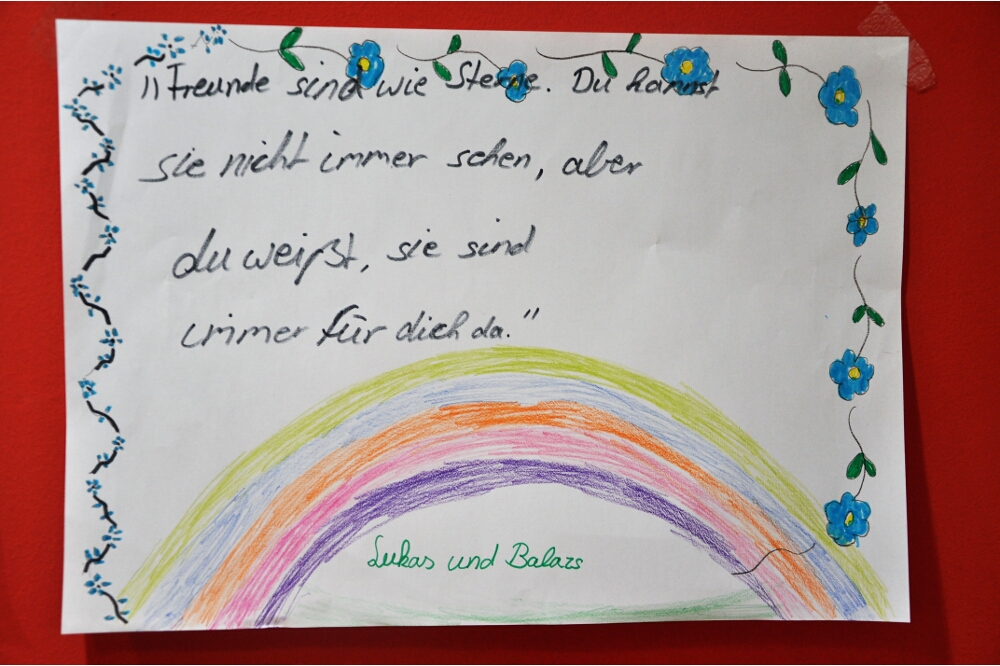 „Freunde sind wie Sterne. Du kannst
sie nicht immer sehen, aber
du weißt, sie sind
immer für dich da.“
Lukas und Balazs